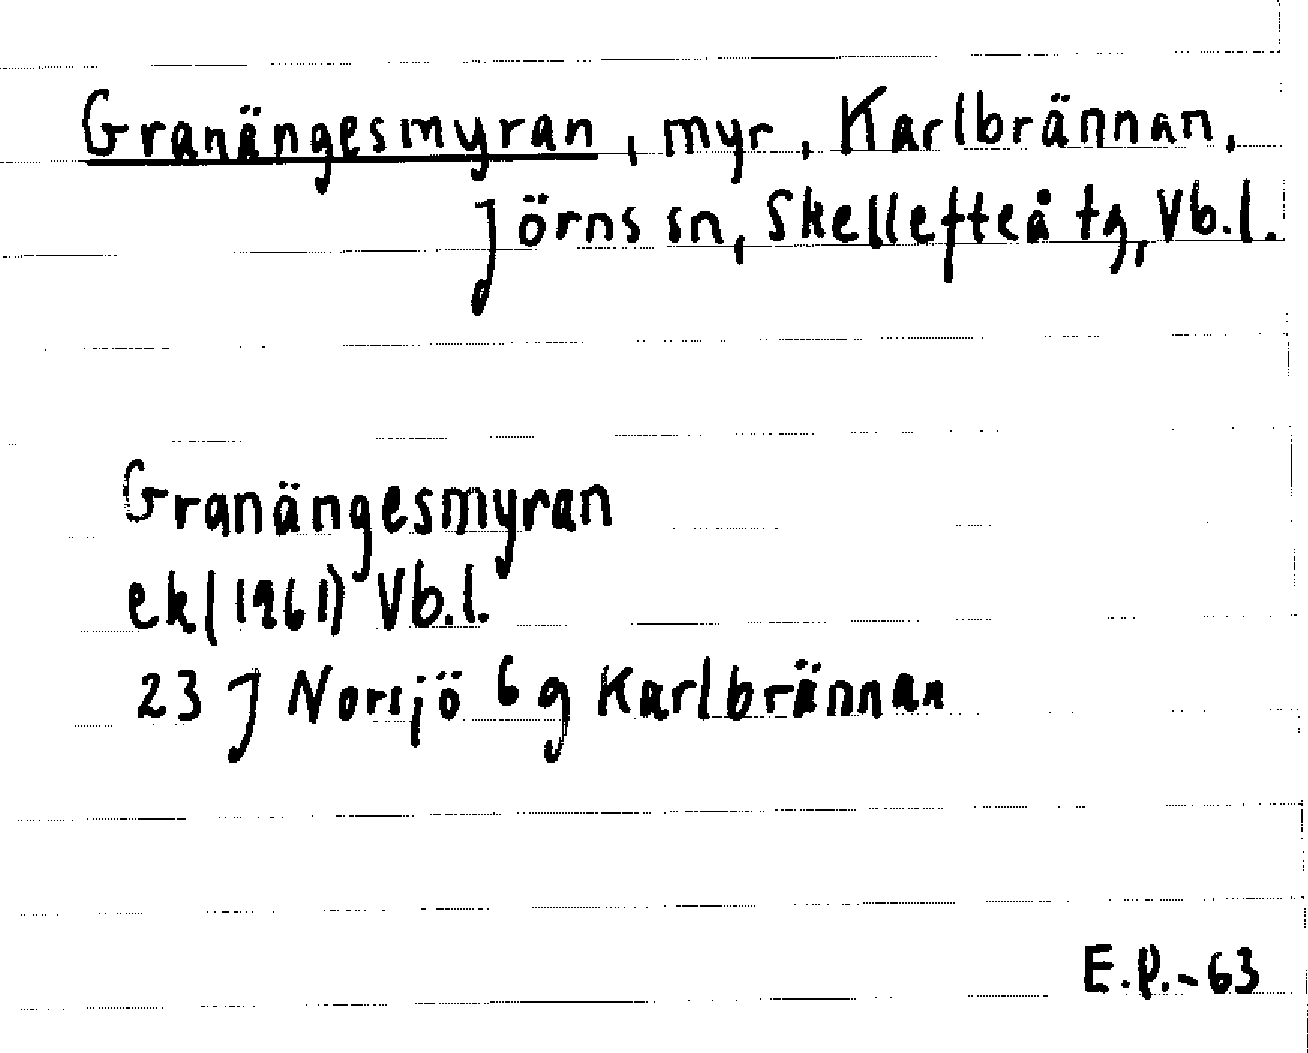 Granängesmyran, myr, Karlbrännan,
Jörns sn, Skellefteå tg, Vb.l.
Granängesmyran
ek (1961) Vb.l.
23 J Norsjö 6 g Karlbrännan
E.P.-63